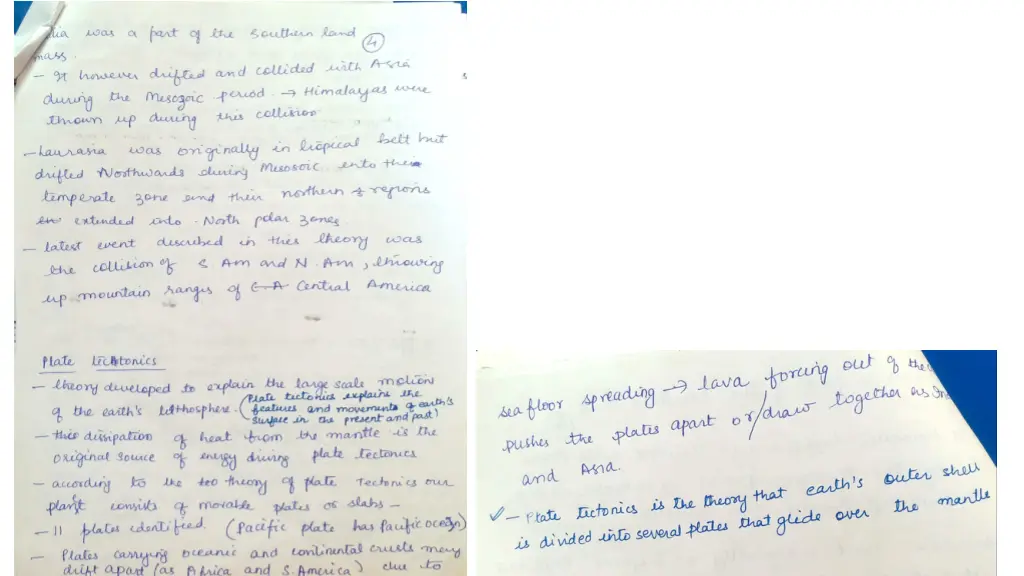 dia was a part of the Southern land
④
mass.
- It however drifted and collided with Asia
during the Mesozoic period → Himalayas were
thrown up during this collision
- Laurasia was originally in tropical belt but
drifted Northwards during Mesosoic into the
temperate zone and their northern regions
extended into North polar zones
- latest event described in this theory was
the collision of S. Am and N. Am, throwing
up mountain ranges of C A Central America
Plate tectonics
- theory developed to explain the large scale motion
of the earth's lithosphere. (Plate tectonics explains the
features and movements of earth's
surface in the present and past)
- this dissipation of heat from the mantle is the
original source of energy driving plate tectonics
- according to the theory of plate tectonics our
planet consists of movable plates or slabs -
- 11 plates identified. (Pacific plate has Pacific ocean)
- Plates carrying oceanic and continental crusts may
drift apart (as Africa and S. America) due to
sea floor spreading → lava forcing out of the
pushes the plates apart or/draw together as In
and Asia.
✓ - Plate tectonics is the theory that earth's outer shell
is divided into several plates that glide over the mantle